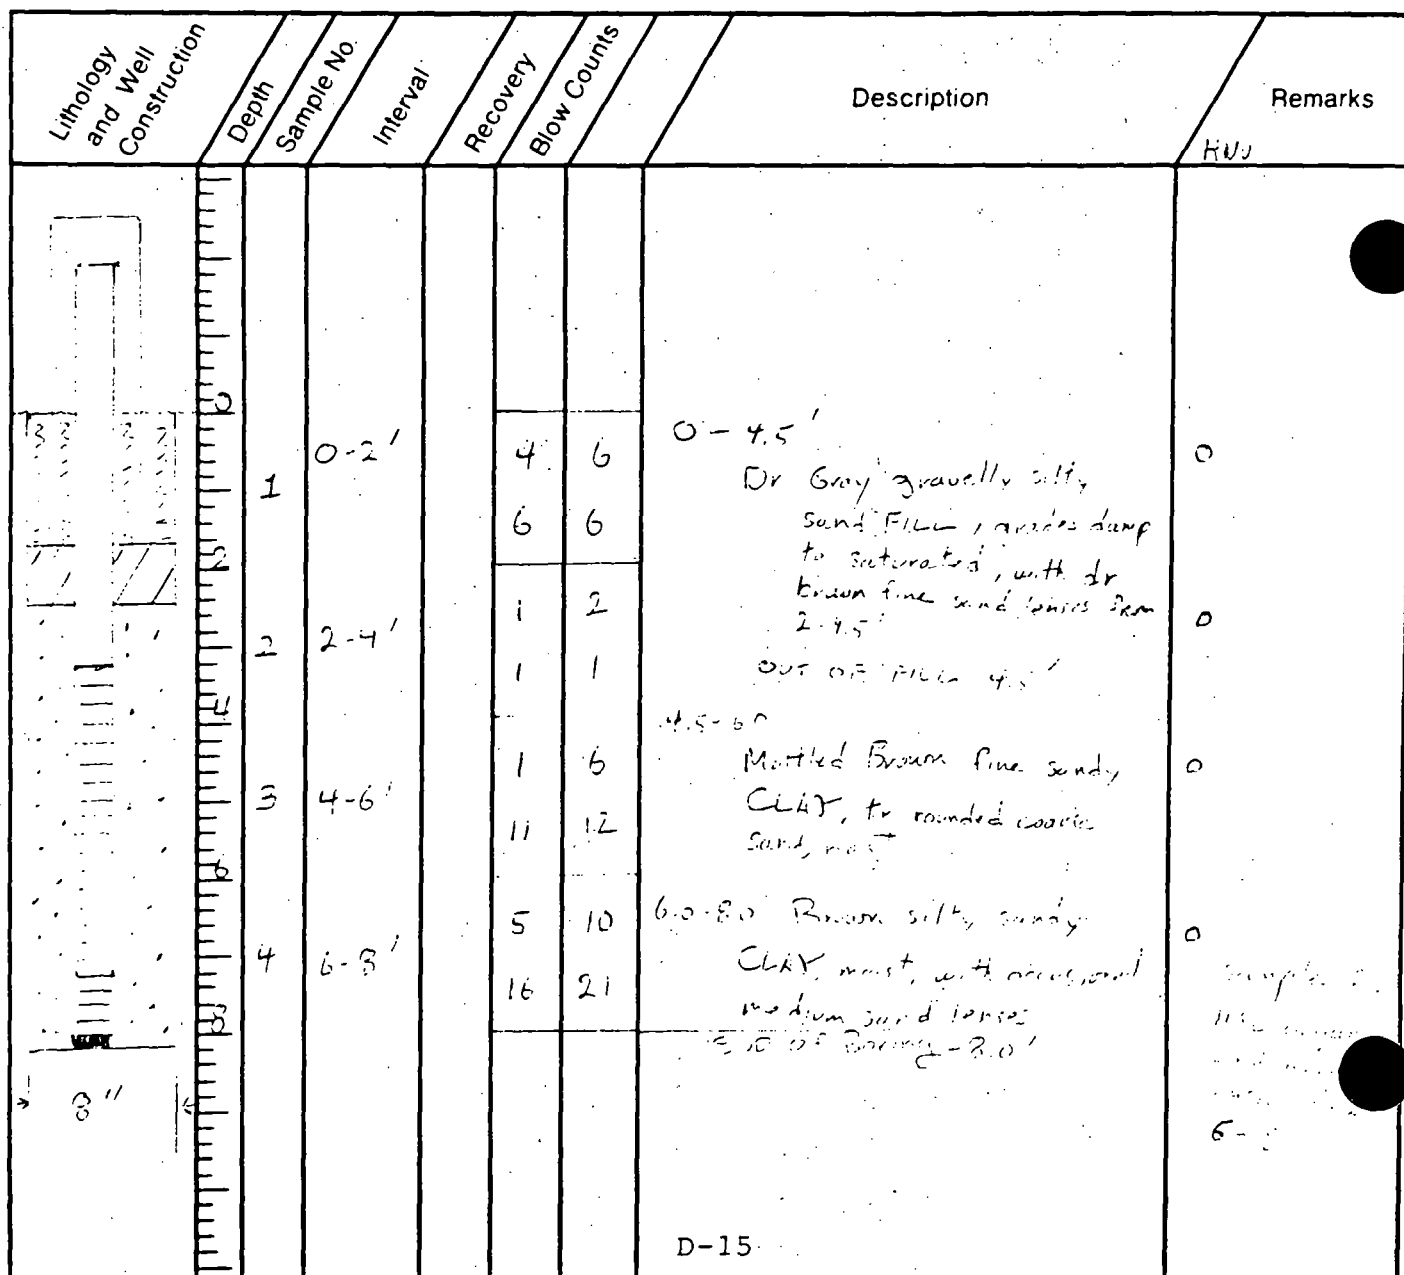 Lithology
and Well
Construction
Depth
Sample No.
Interval
Recovery
Blow Counts
Description
Remarks
HNU
0
0-2'
1
4 6
6 6
0
0 - 4.5'
Dr Gray gravelly silty
sand FILL, grades damp
to saturated, with dr
brown fine sand lenses from
2-4.5'
OUT OF FILL 4.5'
2
2
2-4'
1 2
1 1
0
4
4.5-6.0
Mottled Brown fine sandy
CLAY, tr rounded coarse
sand, moist
3
4-6'
1 6
11 12
0
6
6.0-8.0 Brown silty sandy
CLAY, moist, with occasional
medium sand lenses
END OF Boring - 8.0'
4
6-8'
5 10
16 21
0
8
Sample
6-
8"
D-15